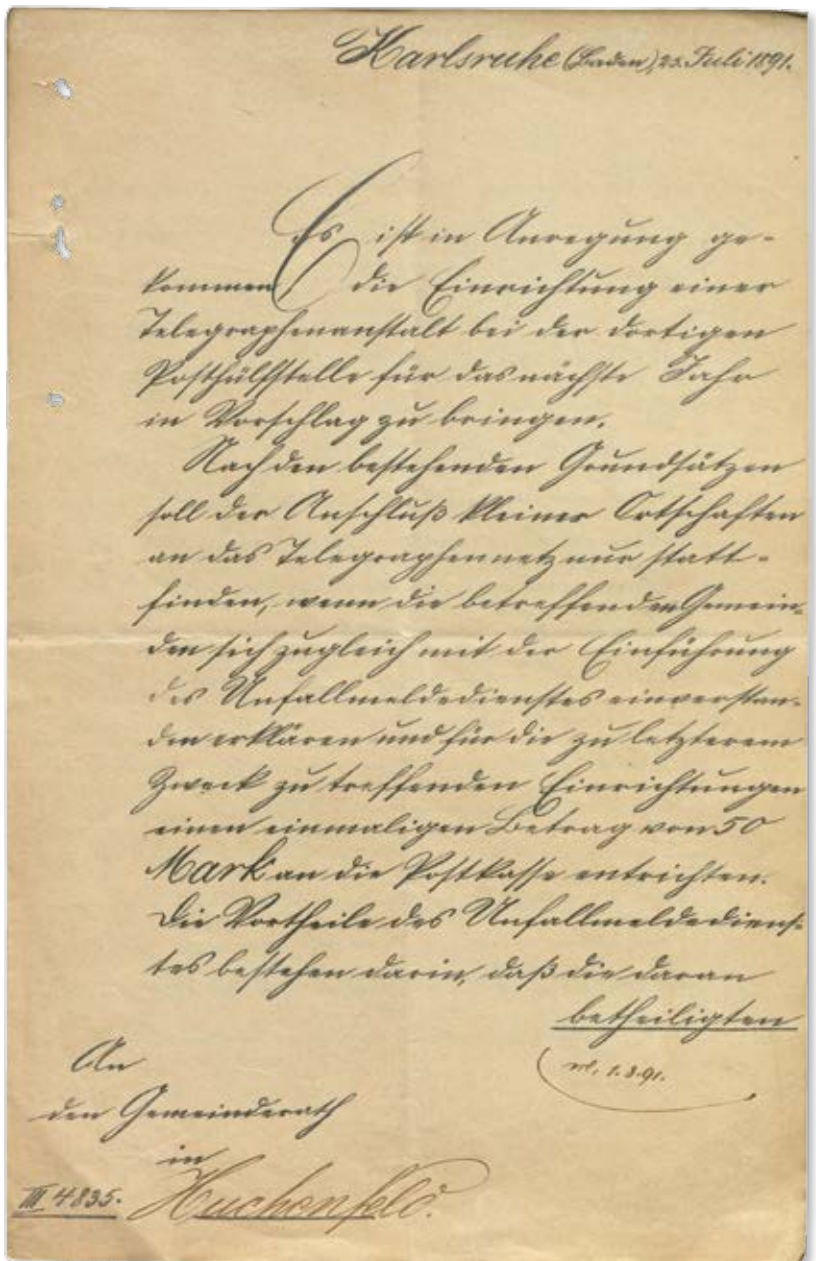 Karlsruhe (Baden), 25. Juli 1891.
Es ist in Anregung ge-
kommen, die Einrichtung einer
Telegraphenanstalt bei der dortigen
Posthülfstelle für das nächste Jahr
in Vorschlag zu bringen.
Nach den bestehenden Grundsätzen
soll der Anschluß kleiner Ortschaften
an das Telegraphennetz nur statt-
finden, wenn die betreffenden Gemein-
den sich zugleich mit der Einführung
des Unfallmeldedienstes einverstan-
den erklären und für die zu letzterem
Zweck zu treffenden Einrichtungen
einen einmaligen Betrag von 50
Mark an die Postkasse entrichten.
Die Vortheile des Unfallmeldediens-
tes bestehen darin, daß die daran
betheiligten
1.8.91.
An
den Gemeinderath
in
III 4835. Huchenfeld.